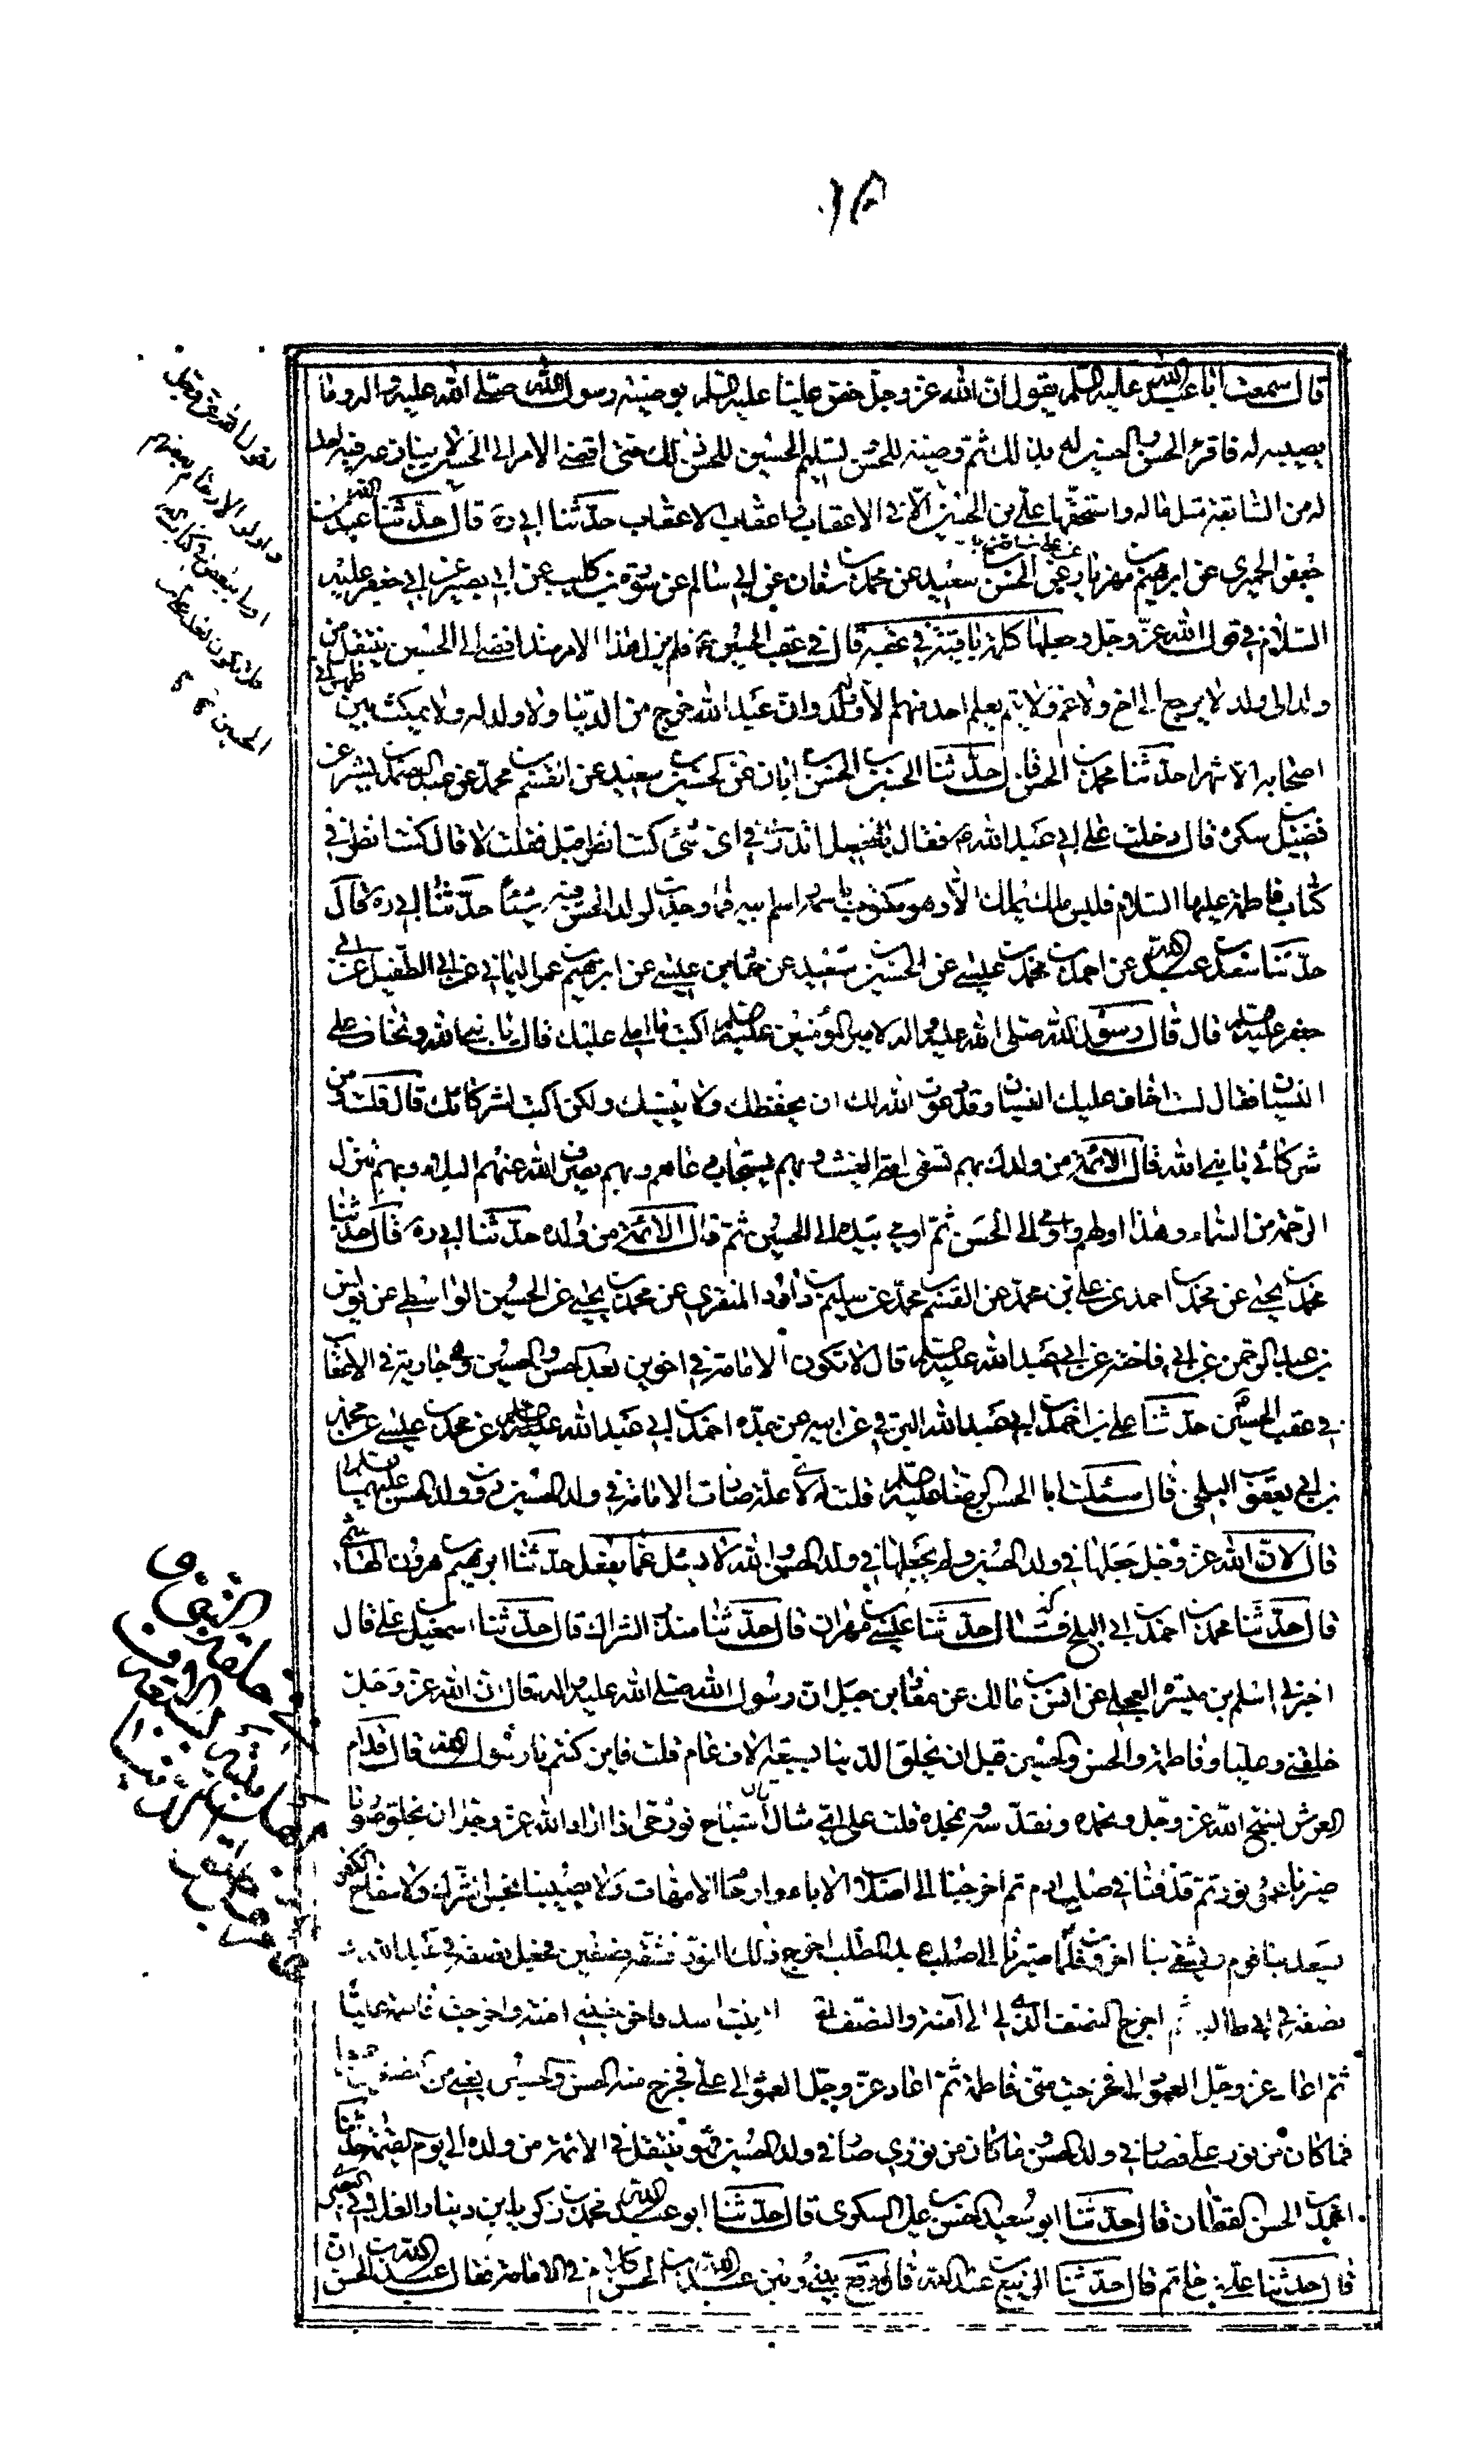 قال سمعت ابا عبد الله عليه السلم يقول ان الله عز وجل خص عليا عليه السلم بوصية رسول الله صلى الله عليه واله وما
يصيبه له فاقر الحسن والحسين له بذلك ثم وصيته للحسن وتسليم الحسين للحسن ذلك حتى افضى الامر الى الحسين لا ينازعه فيه احد
له من السابقة مثل ماله واستحقها علي بن الحسين الا في الاعقاب واعقاب الاعقاب حدثنا ابي ره قال حدثنا عبد الله بن
جعفر الحميري عن ابرهيم بن مهزيار عن الحسين بن سعيد عن محمد بن سنان عن ابي سالم عن سورة بن كليب عن ابي بصير عن ابي جعفر عليه
السلام في قول الله عز وجل وجعلها كلمة باقية في عقبه قال في عقب الحسين ع فلم يزل هذا الامر منذ افضى الى الحسين ينتقل من
والد الى ولد لا يرجع الى اخ ولا عم ولا يتم بعلم احد منهم الا وله ولد وان عبد الله خرج من الدنيا ولا ولد له ولا يمكث بين ظهراني
اصحابه الا شهرا حدثنا محمد بن الحسن قال حدثنا الحسين بن الحسن بن ابان عن الحسين بن سعيد عن القسم بن محمد عن عبد الصمد بن بشير عن
فضيل سكره قال دخلت على ابي عبد الله ع فقال يا فضيل اتدري في اي شئ كنت انظر قبل فقلت لا قال كنت انظر في
كتاب فاطمة عليها السلام فليس ملك يملك الا وهو مكتوب باسمه واسم ابيه فما وجدت لولد الحسن فيه شيئا حدثنا ابي ره قال
حدثنا سعد بن عبد الله عن احمد بن محمد بن عيسى عن الحسين بن سعيد عن حماد بن عيسى عن ابرهيم بن عمر اليماني عن ابي الطفيل عن ابي
جعفر عليه السلم قال قال رسول الله صلى الله عليه واله لامير المؤمنين عليه السلم اكتب ما املي عليك قال يا نبي الله وتخاف علي
النسيان فقال لست اخاف عليك النسيان وقد دعوت الله لك ان يحفظك ولا ينسيك ولكن اكتب لشركائك قال قلت ومن
شركائي يا نبي الله قال الائمة من ولدك بهم تسقى امتي الغيث وبهم يستجاب دعاهم وبهم يصرف الله عنهم البلاء وبهم تنزل
الرحمة من السماء وهذا اولهم واومى الى الحسن ثم اومى بيده الى الحسين ثم قال الائمة من ولده حدثنا ابي ره قال حدثنا
محمد بن يحيى عن محمد بن احمد عن علي بن محمد عن القسم بن محمد عن سليمن بن داود المنقري عن محمد بن يحيى عن الحسين الواسطي عن يونس
بن عبد الرحمن عن ابي فاخته عن ابي عبد الله عليه السلم قال لا تكون الامامة في اخوين بعد الحسن والحسين وهي جارية في الاعقاب
في عقب الحسين حدثنا علي بن احمد بن ابي عبد الله البرقي عن ابيه عن جده احمد بن ابي عبد الله عن محمد بن عيسى عن محمد
بن ابي يعقوب البلخي قال سئلت ابا الحسن الرضا عليه السلم قلت له لاي علة صارت الامامة في ولد الحسين دون ولد الحسن عليهما السلم
قال لان الله عز وجل جعلها في ولد الحسين ولم يجعلها في ولد الحسن والله لا يسئل عما يفعل حدثنا ابرهيم بن هرون الهاشمي
قال حدثنا محمد بن احمد بن ابي البلخ قال حدثنا عيسى بن مهران قال حدثنا منذر الشراك قال حدثنا اسمعيل بن علي قال
اخبرني اسلم بن ميسره العجلي عن انس بن مالك عن معاذ بن جبل ان رسول الله صلى الله عليه واله قال ان الله عز وجل
خلقني وعليا وفاطمة والحسن والحسين قبل ان يخلق الدنيا بسبعة الاف عام قلت فاين كنتم يا رسول الله قال قدام
العرش نسبح الله عز وجل ونحمده ونقدسه ونمجده قلت على اي مثال قال اشباح نور حتى اذا اراد الله عز وجل ان يخلق صورنا
صيرنا عمود نور ثم قذفنا في صلب ادم ثم اخرجنا الى اصلاب الاباء وارحام الامهات ولا يصيبنا نجس الشرك ولا سفاح الكفر
يسعد بنا قوم ويشقى بنا اخرون فلما صيرنا الى صلب عبد المطلب اخرج ذلك النور فشقه نصفين فجعل نصفه في عبد الله و
نصفه في ابي طالب ثم اخرج النصف الذي لي الى آمنة والنصف الى بنت اسد فاخرجتني امنة واخرجت فاطمة عليا
ثم اعاد عز وجل العمود الي فخرجت مني فاطمة ثم اعاد عز وجل العمود الى علي فخرج منه الحسن والحسين يعني من النصفين جميعا
فما كان من نور علي فصار في ولد الحسن وما كان من نوري صار في ولد الحسين فهو ينتقل في الائمة من ولده الى يوم القيمة حدثنا
احمد بن الحسن القطان قال حدثنا ابو سعيد الحسن بن علي السكري قال حدثنا ابو عبد الله محمد بن زكريا بن دينار الغلابي البصري
قال حدثنا علي بن حاتم قال حدثنا الربيع بن عبد الله قال وقع بيني وبين عبد الله بن الحسن كلام في الامامة فقال عبد الله بن الحسن ان
يقول الله عز وجل
واولوا الارحام بعضهم
اولى ببعض في كتاب الله
فلا تكون بعد علي بن
الحسين